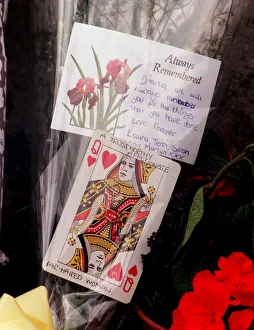 Always
Remembered
Diana we will
always remember
you for the things
that you have done.
Love Forever
Laura Terry Sarah
A TRUSTWORTHY
Q
FAIR-HAIRED WOMAN
Q